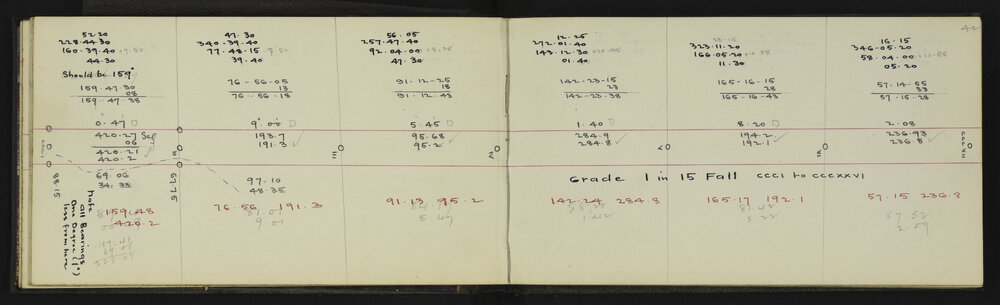 42
52.20
228.44.30
160.39.40
44.30
Should be 159°
159.47.30
08
159.47.38
0.47 D
420.27 Sag
06
420.21
420.2
69.06
34.33
88.15
Note
all Bearings
One Degree (1°)
less from here
159.48
420.2
47.30
340.39.40
77.48.15
39.40
76-56-05
13
76-56-18
9.00 D
193.7
191.3
III
67.75
97.10
48.35
76.56 191.3
9.00
56.05
257.47.40
92.04.00
47.30
91-12-25
18
91-12-43
5.45 D
95.68
95.2
III
91.13 95.2
5.49
12.25
272.01.40
143.12.30
01.40
142-23-15
23
142-23-38
1.40 D
284.9
284.8
Grade 1 in 15 Fall CCCI to CCCXXVI
142.24 284.8
1.42
23.15
323.11.20
166.05.20
11.30
165-16-15
28
165-16-43
8.20 D
194.2
192.1
165.17 192.1
8.22
16.15
346.05.20
58.04.00
05.20
57-14-55
33
57-15-28
2.08
236.93
236.8
CCCVII
57.15 236.8
87.52
2.09